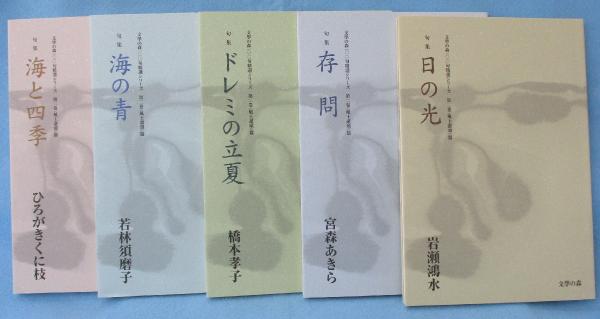 句集
海と四季
ひろがきくに枝
句集
海の青
若林須磨子
句集
ドレミの立夏
橋本孝子
句集
存問
宮森あきら
句集
日の光
岩瀬鴻水
文學の森